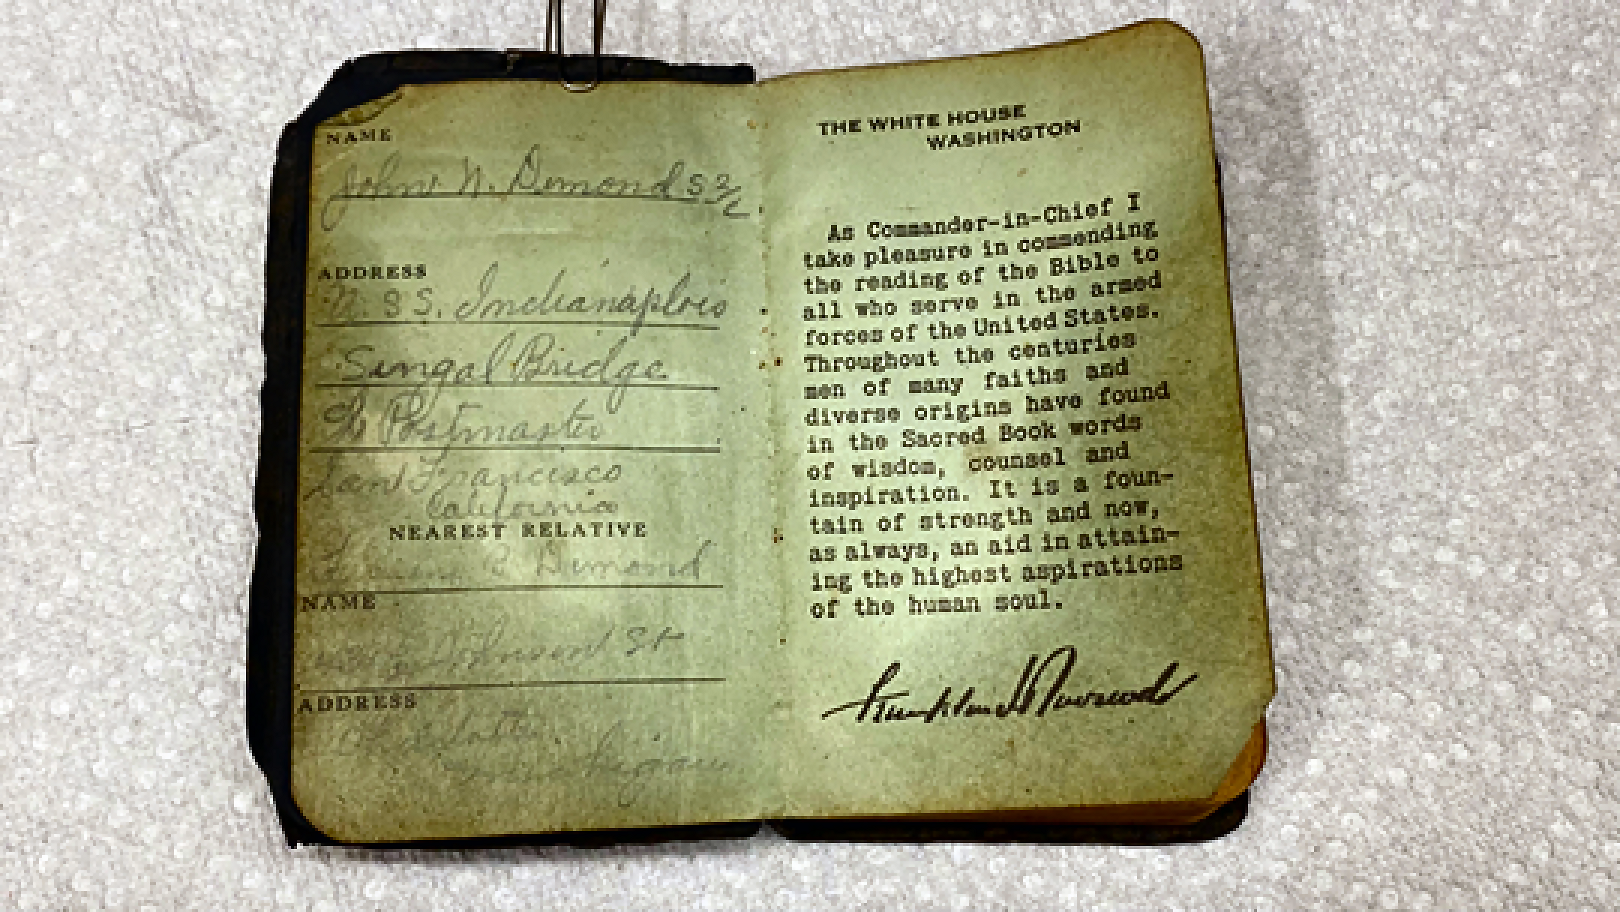 NAME
John N. Demond S 2/c
ADDRESS
U.S.S. Indianaplois
Singal Bridge
Postmaster
San Francisco
California
NEAREST RELATIVE
C. Demond
NAME
Johnson St
ADDRESS
Michigan
THE WHITE HOUSE
WASHINGTON
As Commander-in-Chief I
take pleasure in commending
the reading of the Bible to
all who serve in the armed
forces of the United States.
Throughout the centuries
men of many faiths and
diverse origins have found
in the Sacred Book words
of wisdom, counsel and
inspiration. It is a foun-
tain of strength and now,
as always, an aid in attain-
ing the highest aspirations
of the human soul.
Franklin D Roosevelt